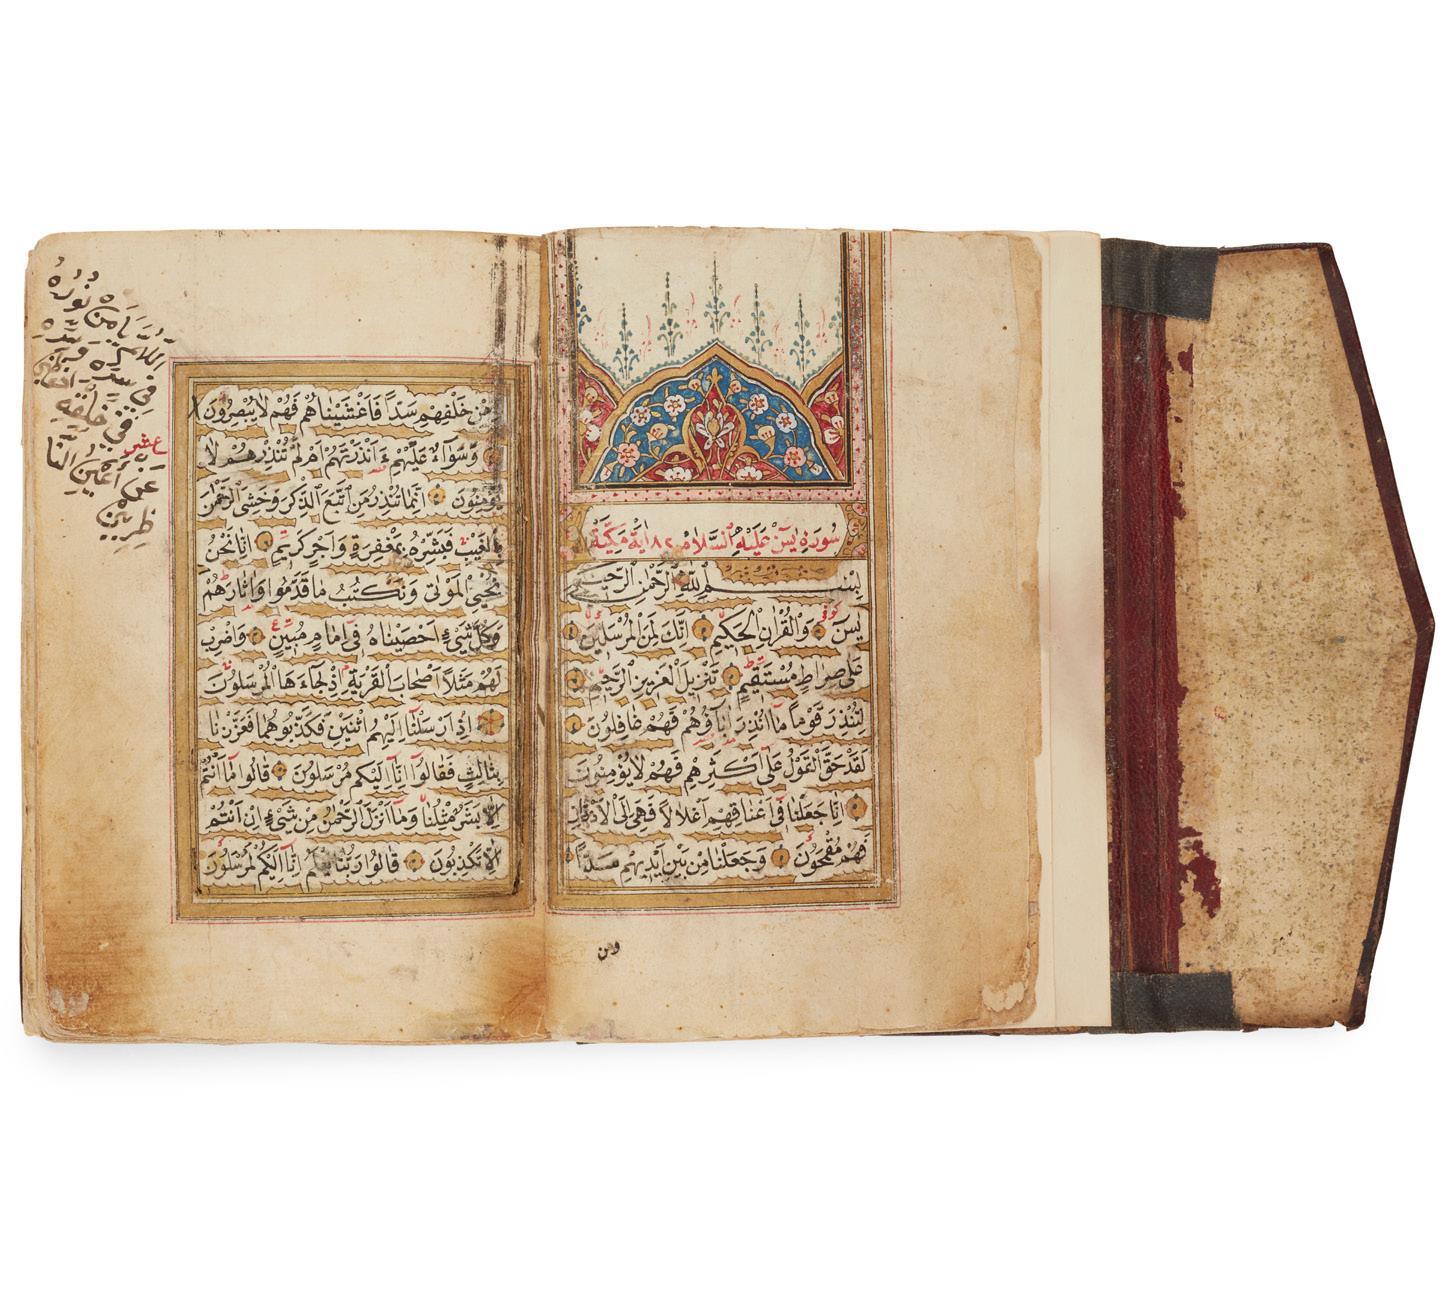 سُورَةِ يسۤ عَلَيْهِ السَّلَام ٨٢ اٰيَة مَكِّيَّة
بِسْــــمِ اللهِ الرَّحْمٰنِ الرَّحيــمِ
يسۤ كوفى وَالْقُرْاٰنِ الْحَكيمِ اِنَّكَ لَمِنَ الْمُرْسَلينَ
عَلٰى صِرَاطٍ مُسْتَقيمٍ تَنْزيلَ الْعَزيزِ الرَّحيمِ
لِتُنْذِرَ قَوْماً مَا اُنْذِرَ اٰبَاؤُهُمْ فَهُمْ غَافِلُونَ
لَقَدْ حَقَّ الْقَوْلُ عَلٰى اَكْثَرِهِمْ فَهُمْ لَايُؤْمِنُونَ
اِنَّا جَعَلْنَا فى اَعْنَاقِهِمْ اَغْلَالاً فَهِىَ اِلَى الْاَذْقَانِ
فَهُمْ مُقْمَحُونَ وَجَعَلْنَا مِنْ بَيْنِ اَيْديهِمْ سَدّاً
ومن
مِنْ خَلْفِهِمْ سَدّاً فَاَغْشَيْنَاهُمْ فَهُمْ لَايُبْصِرُونَ
وَسَوَاءٌ عَلَيْهِمْ ءَاَنْذَرْتَهُمْ اَمْ لَمْ تُنْذِرْهُمْ لَا
يُؤْمِنُونَ اِنَّمَا تُنْذِرُ مَنِ اتَّبَعَ الذِّكْرَ وَخَشِىَ الرَّحْمٰنَ
بِالْغَيْبِ فَبَشِّرْهُ بِمَغْفِرَةٍ وَاَجْرٍ كَريمٍ اِنَّا نَحْنُ
نُحْيِى الْمَوْتٰى وَنَكْتُبُ مَا قَدَّمُوا وَاٰثَارَهُمْ
وَكُلَّ شَىْءٍ اَحْصَيْنَاهُ فى اِمَامٍ مُبينٍ وَاضْرِبْ
لَهُمْ مَثَلاً اَصْحَابَ الْقَرْيَةِ اِذْ جَاءَهَا الْمُرْسَلُونَ
اِذْ اَرْسَلْنَا اِلَيْهِمُ اثْنَيْنِ فَكَذَّبُوهُمَا فَعَزَّزْنَا
بِثَالِثٍ فَقَالُوا اِنَّا اِلَيْكُمْ مُرْسَلُونَ قَالُوا مَا اَنْتُمْ
اِلَّا بَشَرٌ مِثْلُنَا وَمَا اَنْزَلَ الرَّحْمٰنُ مِنْ شَىْءٍ اِنْ اَنْتُمْ
اِلَّا تَكْذِبُونَ قَالُوا رَبُّنَا يَعْلَمُ اِنَّا اِلَيْكُمْ لَمُرْسَلُونَ
يَا مَنْ نُورُهُ
فى سِرِّهِ
فى خَلْقِهِ
عشر
عَنْ اَعْيُنِ النَّا
ظِرينَ